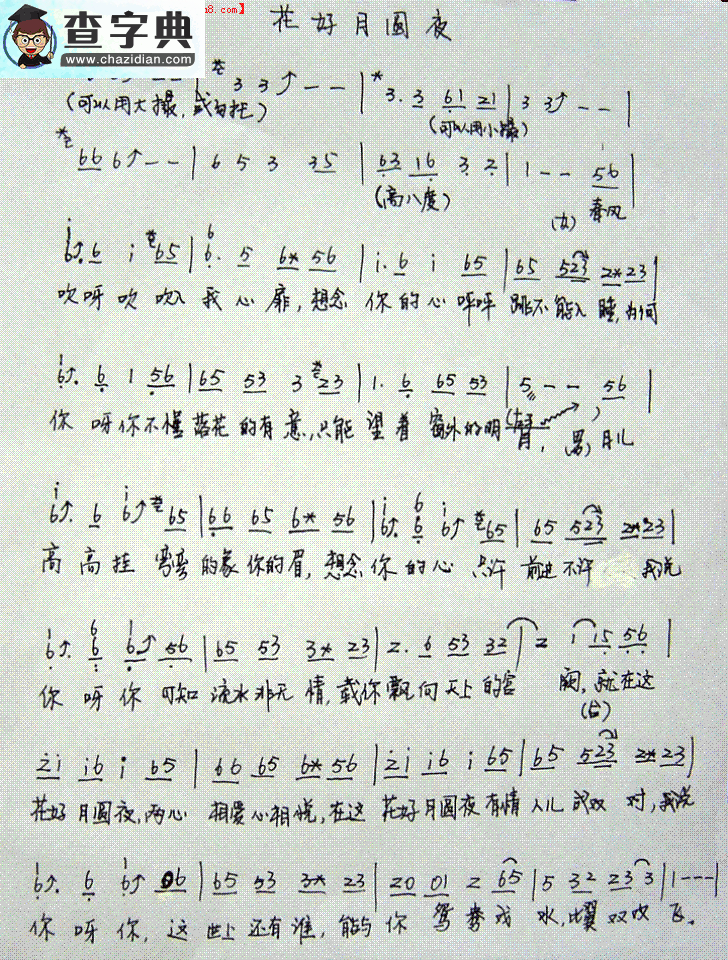 查字典
www.chazidian.com
8.com】
花好月圆夜
3 3 - - | 3. 3 61 21 | 3 3 - - |
(可以用大撮,或勾托) (可以用小撮)
66 6 - - | 6 5 3 35 | 63 16 3 2 | 1 - - 56 |
(高八度) (女) 春风
6. 6 i 65 | 6. 5 6* 56 | i. 6 i 65 | 65 523 2*23 |
吹呀吹 吹入 我 心 扉,想念 你 的 心 呯呯 跳不能入 睡,为何
6. 6 1 56 | 65 53 3 23 | 1. 6 65 53 | 5 - - 56 |
你 呀你不懂 落花 的有 意,只能 望 着 窗外的明 月, (男) 月儿
6. 6 6 65 | 66 65 6* 56 | 6. 6 6 65 | 65 523 2*23 |
高 高挂 弯弯 的象 你的眉,想念 你 的 心 只许 前进 不许 我说
6. 6 6 56 | 65 53 3* 23 | 2. 6 53 32 | 2 1 15 56 |
你 呀 你 可知 流水 非无 情,载你飘 向 天上 的宫 阙,就在这
(合)
2i i6 i 65 | 66 65 6* 56 | 2i i6 i 65 | 65 523 2*23 |
花好 月圆夜,两心 相爱 心相 悦,在这 花好 月圆夜 有情 人儿 成双 对,我说
6. 6 6 06 | 65 53 3* 23 | 20 01 2 65 | 5 32 23 3 | 1 - - - |
你 呀 你,这 世上 还有 谁,能与 你 鸳鸯 戏 水,比翼 双双 飞。